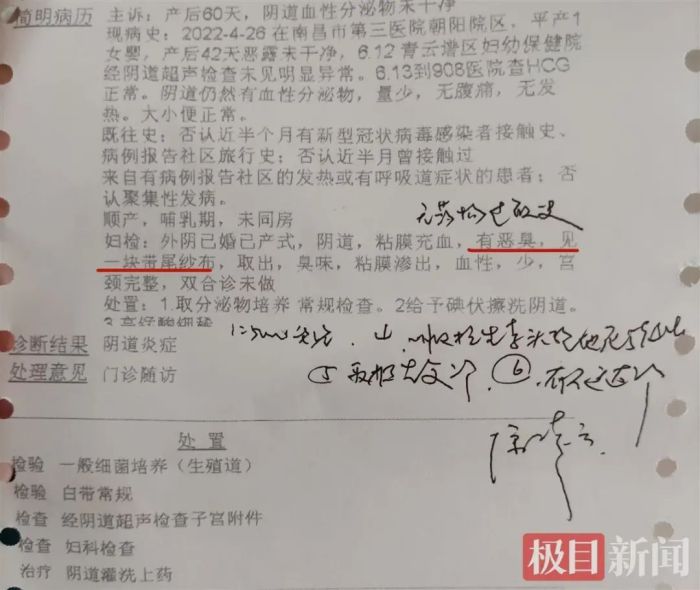 简明病历 主诉：产后60天，阴道血性分泌物未干净
现病史：2022-4-26在南昌市第三医院朝阳院区，平产1
女婴，产后42天恶露未干净，6.12青云谱区妇幼保健院
经阴道超声检查未见明显异常。6.13到908医院查HCG
正常。阴道仍然有血性分泌物，量少，无腹痛，无发
热。大小便正常。
既往史：否认近半个月有新型冠状病毒感染者接触史、
病例报告社区旅行史；否认近半月曾接触过
来自有病例报告社区的发热或有呼吸道症状的患者；否
认聚集性发病。
无药物过敏史
顺产，哺乳期，未同房
妇检：外阴已婚已产式，阴道，粘膜充血，有恶臭，见
一块带尾纱布，取出，臭味，粘膜渗出，血性，少，宫
颈完整，双合诊未做
处置：1.取分泌物培养 常规检查。2给予碘伏擦洗阴道。
诊断结果 阴道炎症
处理意见 门诊随访
处置
检验 一般细菌培养（生殖道）
检验 白带常规
检查 经阴道超声检查子宫附件
检查 妇科检查
治疗 阴道灌洗上药
极目新闻